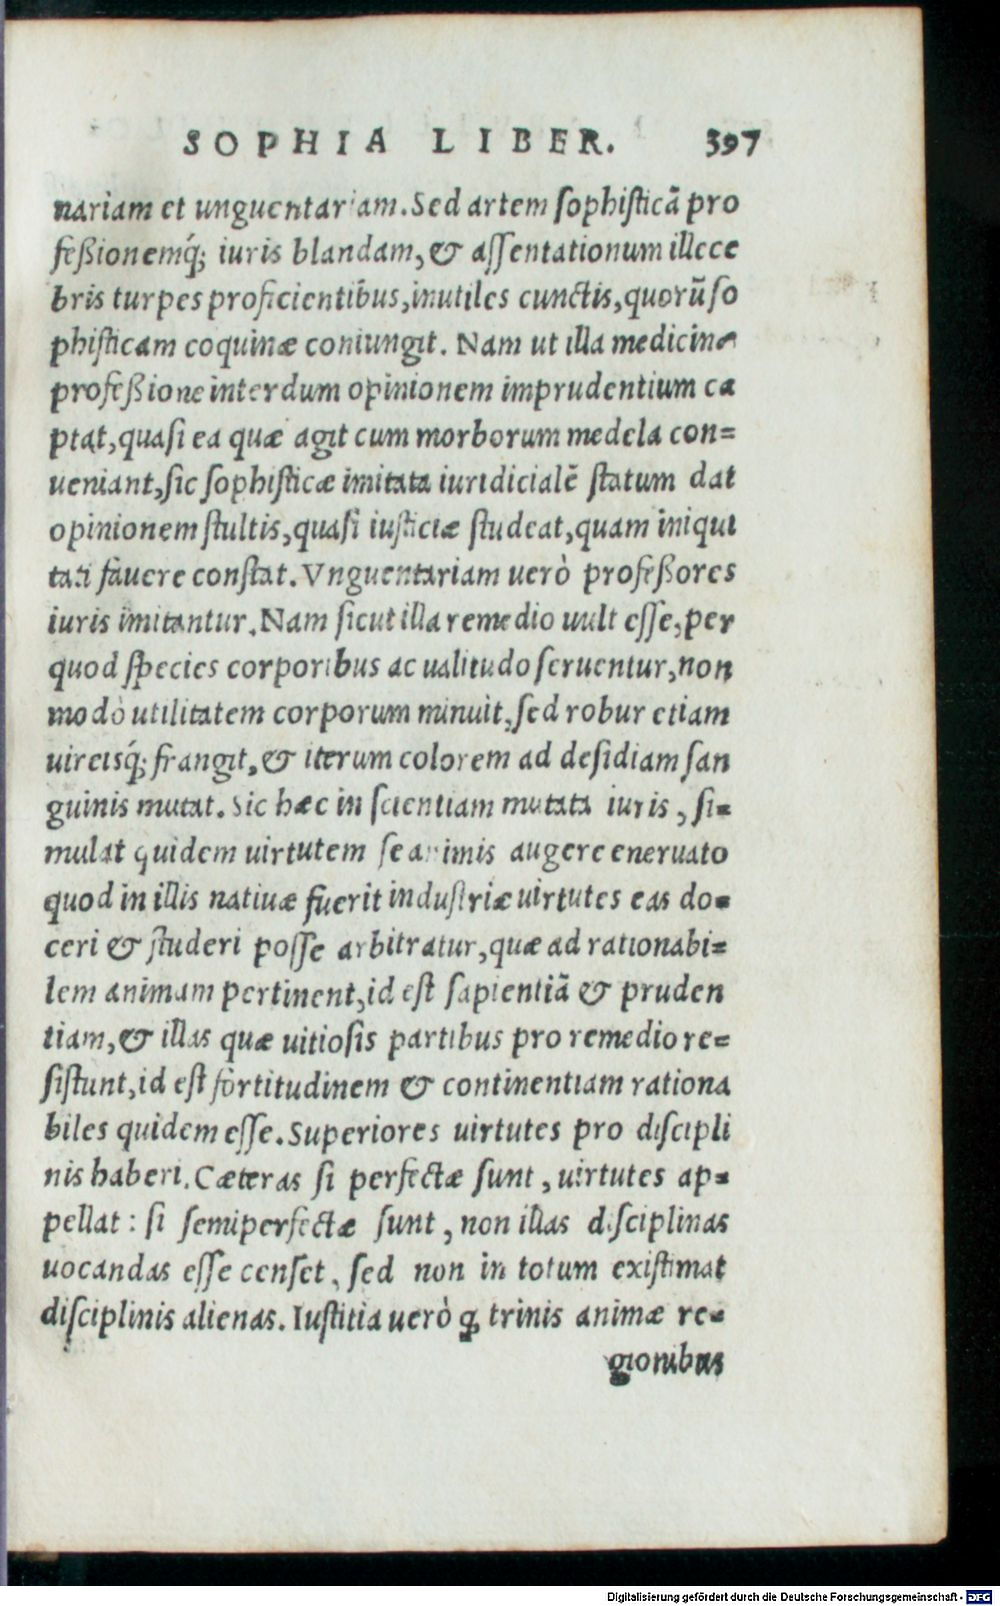 SOPHIA LIBER. 397
nariam et unguentariam. Sed artem ſophiſticã pro
feßionemq́; iuris blandam, & aſſentationum illece
bris turpes proficientibus, inutiles cunctis, quorũ ſo
phiſticam coquinæ coniungit. Nam ut illa medicinæ
profeßione interdum opinionem imprudentium ca
ptat, quaſi ea quæ agit cum morborum medela con=
ueniant, ſic ſophiſticæ imitata iuridicialẽ ſtatum dat
opinionem ſtultis, quaſi iuſticiæ ſtudeat, quam iniqui
tati fauere conſtat. Vnguentariam uerò profeßores
iuris imitantur. Nam ſicut illa remedio uult eſſe, per
quod ſpecies corporibus ac ualitudo ſeruentur, non
modò utilitatem corporum minuit, ſed robur etiam
uireisq́; frangit, & iterum colorem ad deſidiam ſan
guinis mutat. Sic hæc in ſcientiam mutata iuris, ſi=
mulat quidem uirtutem ſe animis augere eneruato
quod in illis natiuæ fuerit induſtriæ uirtutes eas do=
ceri & ſtuderi poſſe arbitratur, quæ ad rationabi=
lem animam pertinent, id eſt ſapientiã & pruden
tiam, & illas quæ uitioſis partibus pro remedio re=
ſiſtunt, id eſt fortitudinem & continentiam rationa
biles quidem eſſe. Superiores uirtutes pro diſcipli
nis haberi. Cæteras ſi perfectæ ſunt, uirtutes ap=
pellat: ſi ſemiperfectæ ſunt, non illas diſciplinas
uocandas eſſe cenſet, ſed non in totum exiſtimat
diſciplinis alienas. Iuſtitia uerò ꝙ trinis animæ re=
gionibus
Digitalisierung gefördert durch die Deutsche Forschungsgemeinschaft - DFG